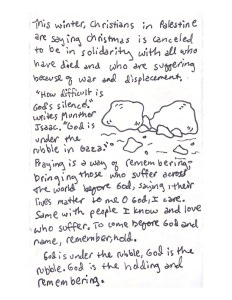 This winter, Christians in Palestine
are saying Christmas is canceled
to be in solidarity with all who
have died and who are suffering
because of war and displacement.
"How difficult is
God's silence."
writes Munther
Isaac. "God is
under the
rubble in Gaza."
Praying is a way of remembering
bringing those who suffer across
the world before God, saying, their
lives matter to me. O God, I care.
Same with people I know and love
who suffer. To come before God and
name, remember, hold.
God is under the rubble, God is the
rubble. God is the holding and
remembering.